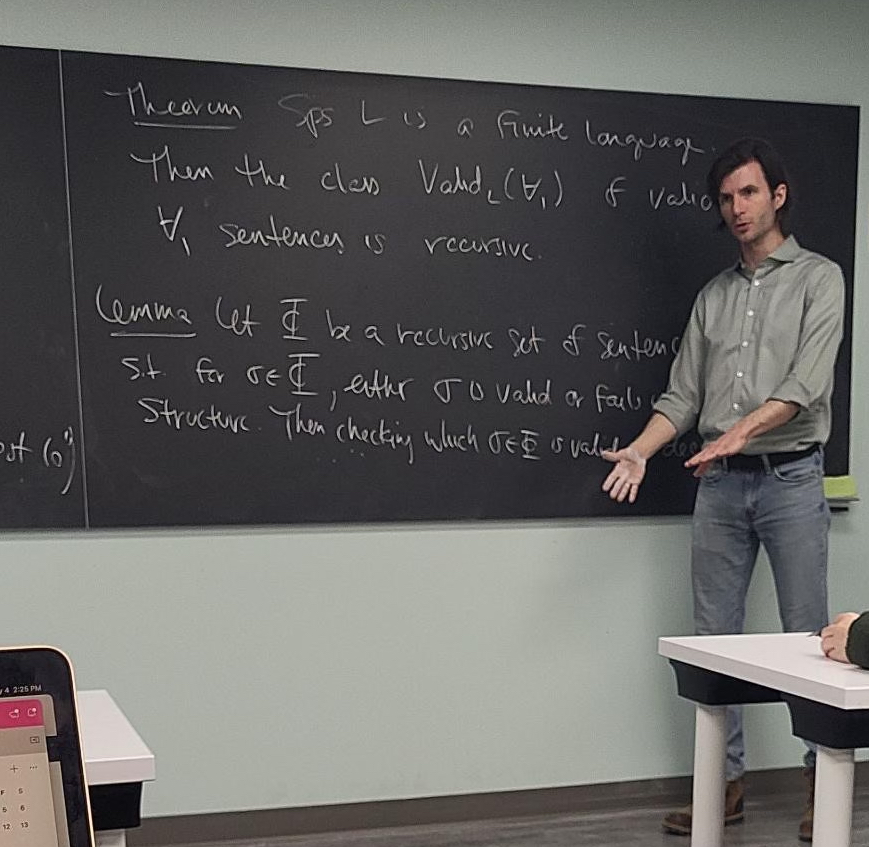 Theorem Sps L is a finite language.
Then the class Valid_L(∀₁) of valid
∀₁ sentences is recursive.
Lemma Let Φ be a recursive set of senten
s.t. for σ∈Φ, either σ is valid or fails
structure. Then checking which σ∈Φ is valid dec
4 2:25 PM
S
5 6
12 13